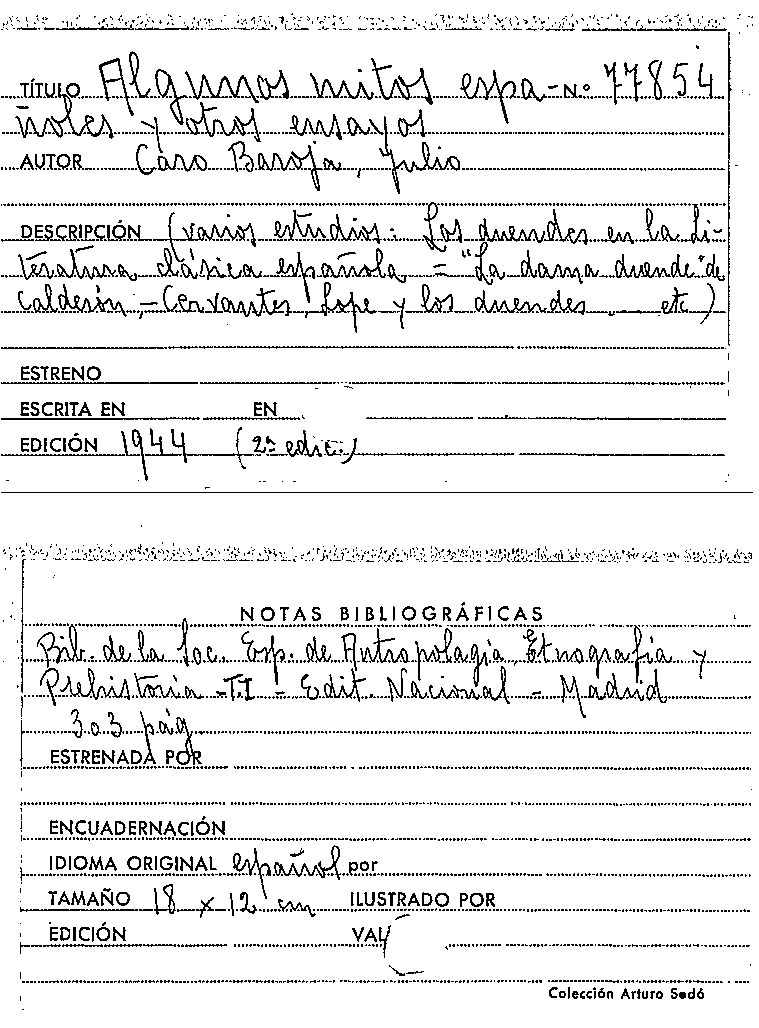 TÍTULO Algunos mitos espa- Nº 77854
ñoles y otros ensayos
AUTOR Caro Baroja, Julio
DESCRIPCIÓN (varios estudios: Los duendes en la Li-
teratura clásica española = "La dama duende" de
Calderón, - Cervantes, Lope y los duendes .... etc)
ESTRENO
ESCRITA EN EN
EDICIÓN 1944 (2ª edic.)
NOTAS BIBLIOGRÁFICAS
Bib. de la Soc. Esp. de Antropología, Etnografía y
Prehistoria - T.I - Edit. Nacional - Madrid
303 pág.
ESTRENADA POR
ENCUADERNACIÓN
IDIOMA ORIGINAL español por
TAMAÑO 18 x 12 cm ILUSTRADO POR
EDICIÓN VAL
Colección Arturo Sedó